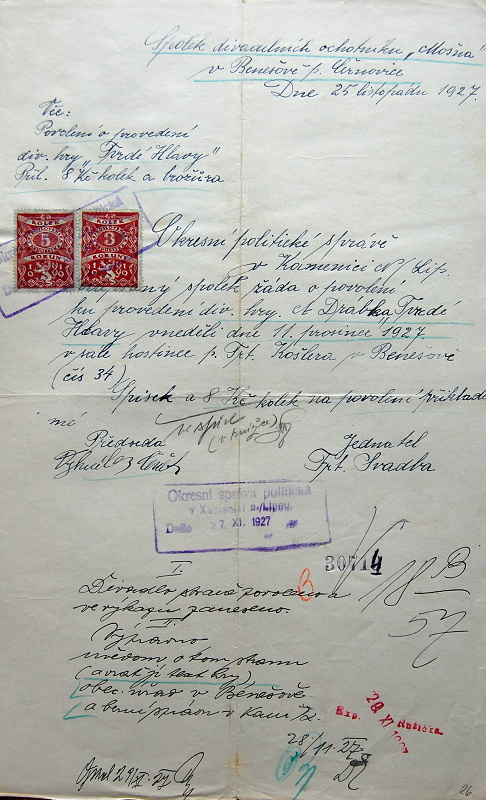 Spolek divadelních ochotníku „Mošna"
v Benešově p. Černovice
Dne 25 listopadu 1927.
Věc:
Povolení o provedení
div. hry „Tvrdé Hlavy"
Příl. 8 Kč kolek a brožůra
KOLEK
KOLEK
5
3
KORUN
KORUNY
Okresní politické správě
v Kamenici N/Lip.
spolek žádá o povolení
ku provedení div. hry. A Drábka „Tvrdé
Hlavy" v neděli dne 11. prosince 1927.
v sále hostince p. Frt. Košlera v Benešově
(čís 34)
Spisek a 8 Kč kolek na povolení přikládá
mé
ve spise
Předseda
Jednatel
Frt. Svadba
Okresní správa politická
v Kamenici n./Lipou.
Došlo 27. XI. 1927
30714
18 B
57
I.
Divadlo povoleno a
ve výkazu zaneseno.
II.
Výpravno
uvědom. o tom stranu
(a vrať jí text hry)
obec. úřad v Benešově
28/11 27
Exp. 29 XI 1927 Růžička
26